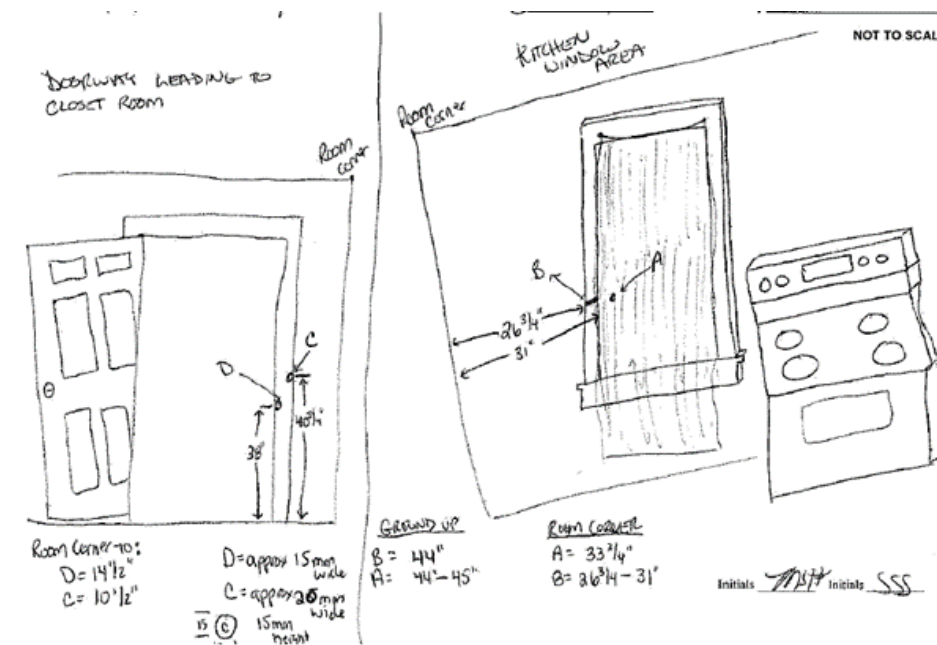 DOORWAY LEADING TO
CLOSET ROOM
Room
corner
D
C
38"
40 3/4"
Room Corner to:
D = 14 1/2"
C = 10 1/2"
D = approx 15 mm
wide
C = approx 20 mm
wide
15 C 15 mm
height
NOT TO SCAL
KITCHEN
WINDOW
AREA
Room
Corner
B
A
26 3/4"
31"
GROUND UP
B = 44"
A = 44"-45"
ROOM CORNER
A = 33 3/4"
B = 26 3/4 - 31"
Initials
Initials SSS